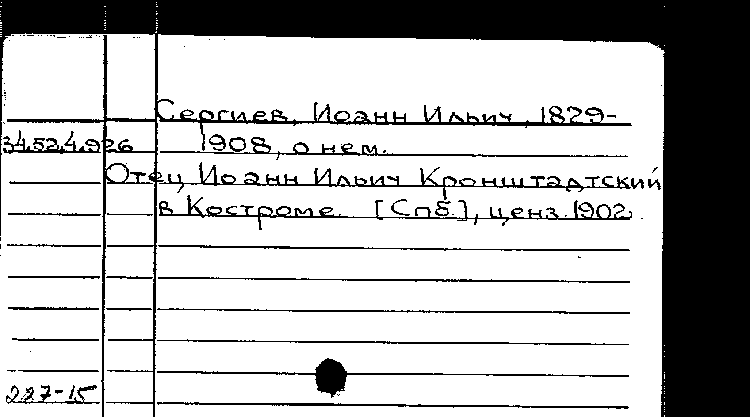 Сергиев, Иоанн Ильич, 1829-
34.52.4.926 1908, о нем.
Отец Иоанн Ильич Кронштадтский
в Костроме. [Спб.], ценз. 1902.
227-15